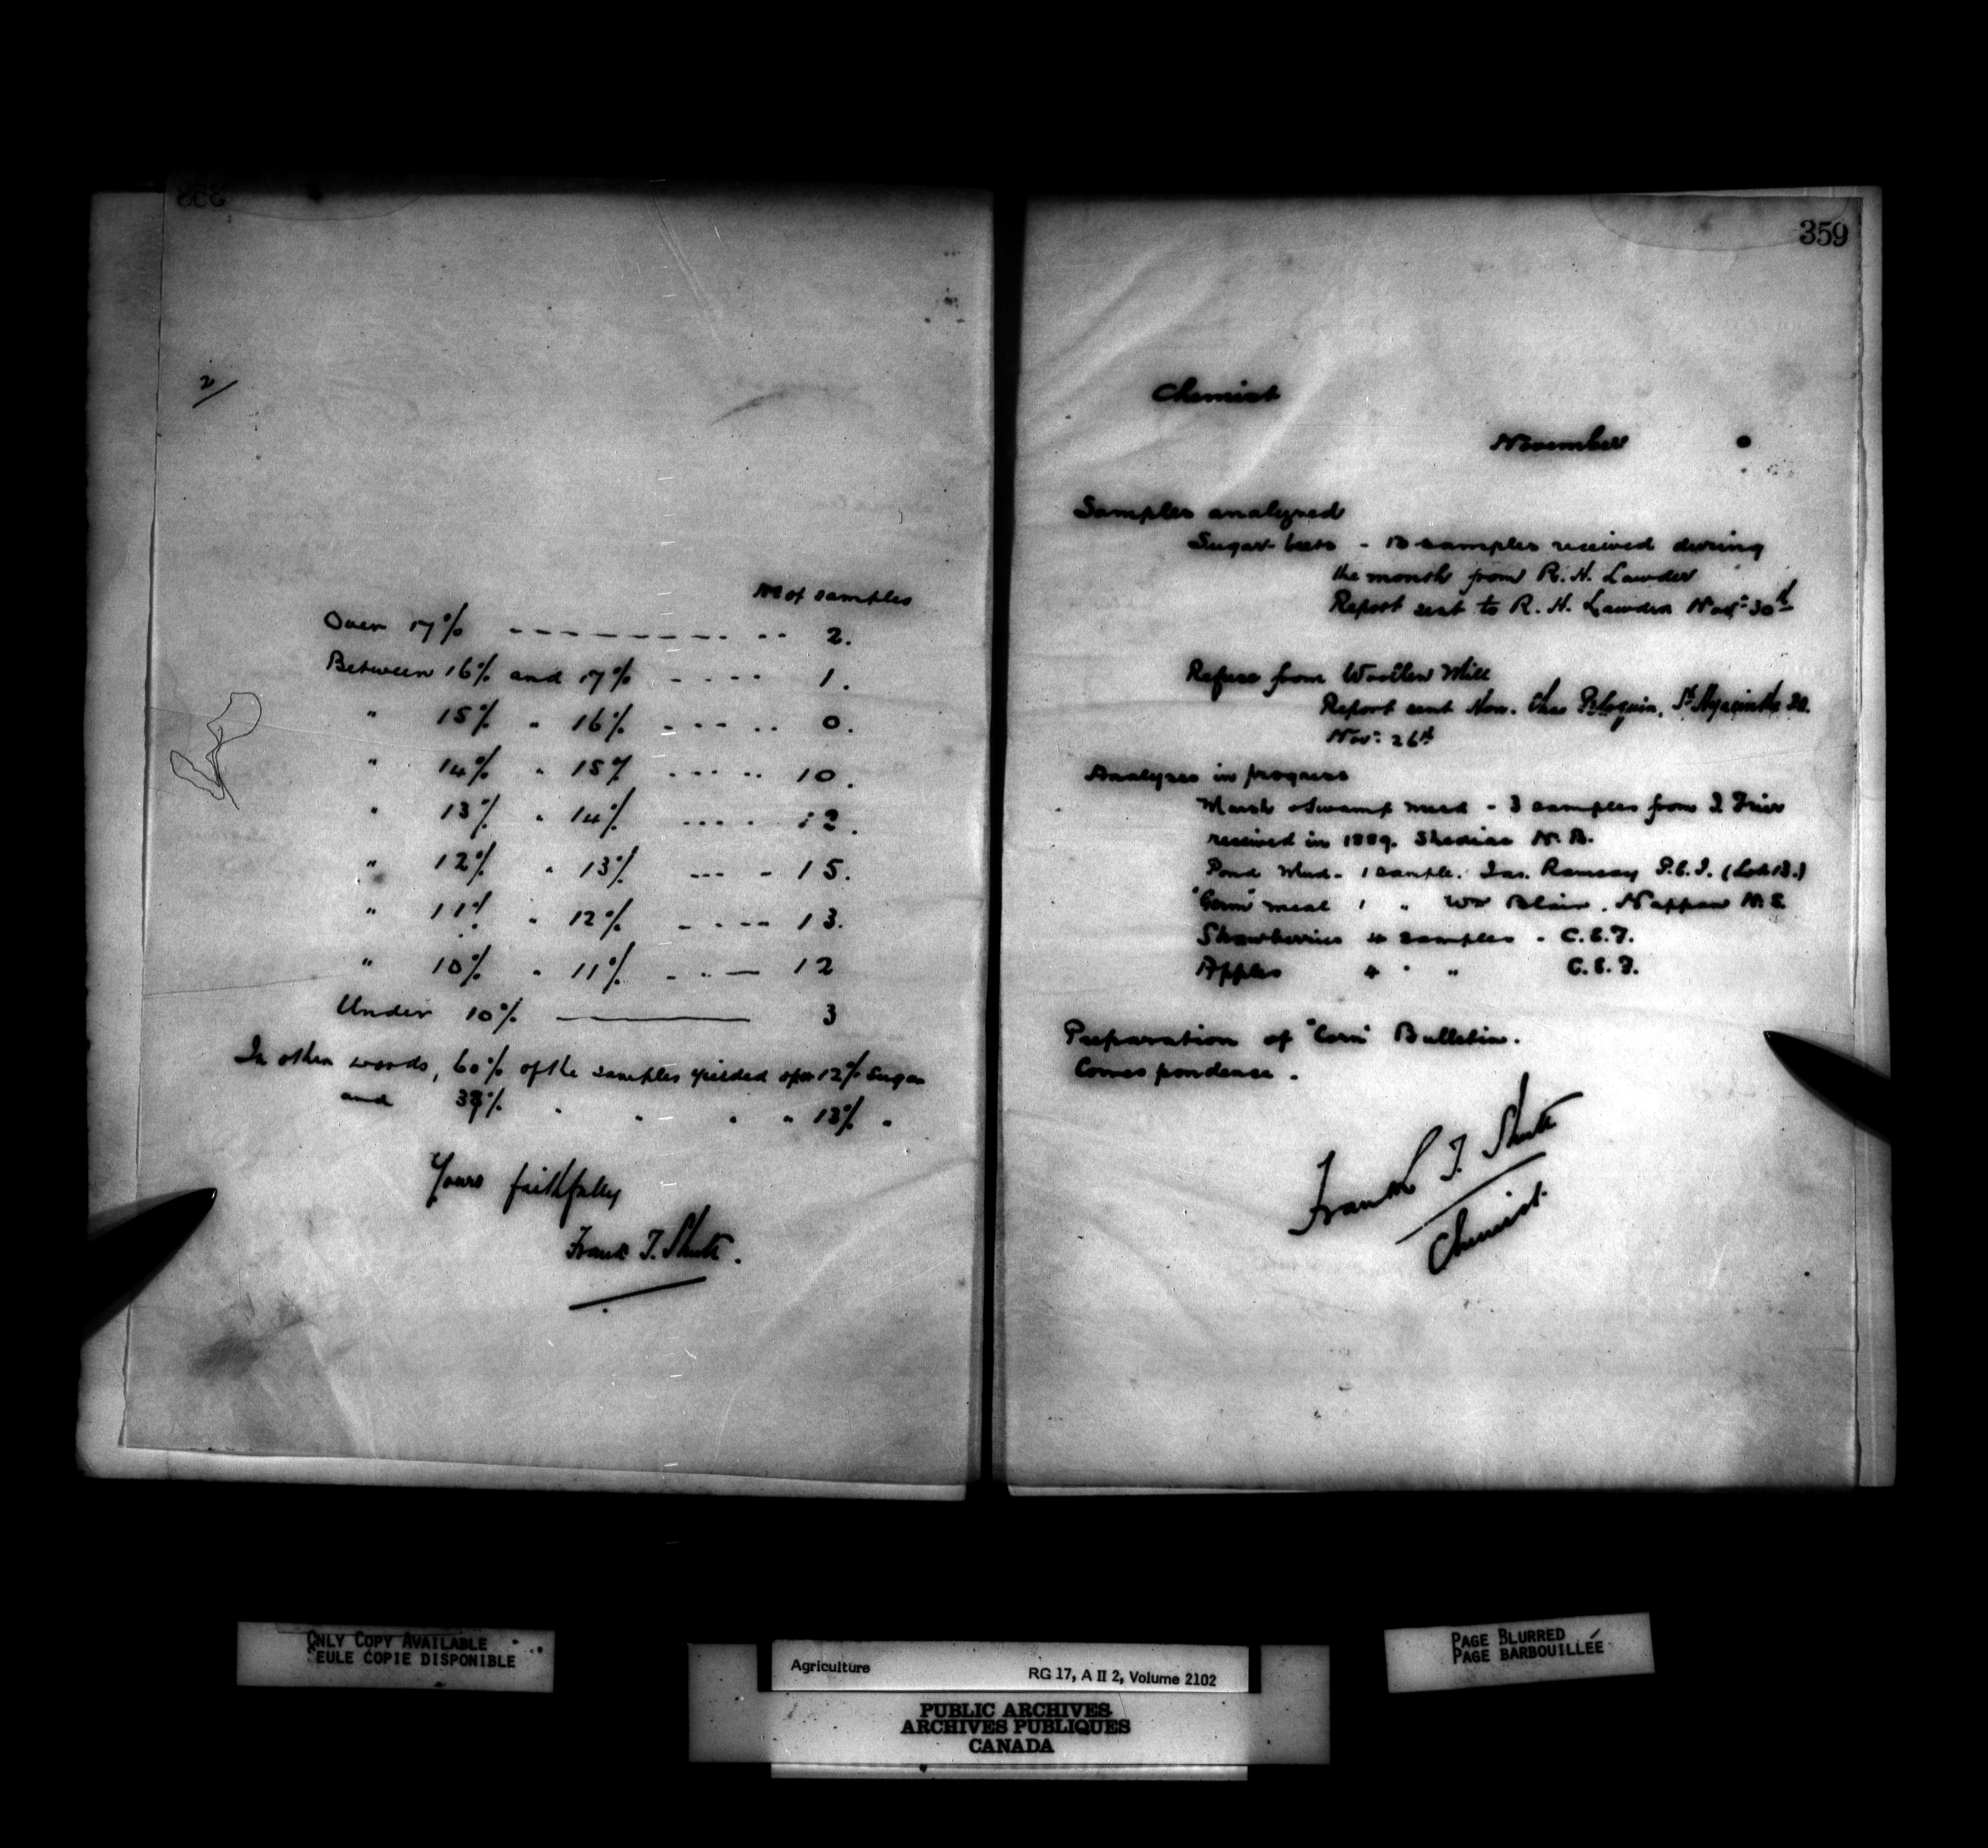 2/
No of samples
Over 17% - - - - - - - - - - - - 2.
Between 16% and 17% - - - - 1.
" 15% " 16% - - - - - - 0.
" 14% " 15% - - - - - - 10.
" 13% " 14% - - - - - 12.
" 12% " 13% - - - - 15.
" 11% " 12% - - - - - 13.
" 10% " 11% - - - — 12
Under 10% ———— 3
In other words, 60% of the samples yielded upon 12% sugar
and 38% " " " " 13% "
Yours faithfully
Frank T. Shutt.
359
Chemist
November
Samples analyzed
Sugar-beets - 13 samples received during
the month from R. H. Lawder
Report sent to R. H. Lawder Nov: 30th
Refuse from Woollen Mill
Report sent Hon. Chas St. Hyacinthe
Nov: 26th
Analyses in progress
Marsh & Swamp mud - 3 samples from
received in 1889. Shediac N. B.
Pond Mud - 1 sample. Jas. Ramsay P.E.I. (Lot 13.)
"Germ" meal 1 " Wm Blair. Nappan N.S.
Strawberries 4 samples - C.E.F.
Apples 4 " " C.E.F.
Preparation of "Corn" Bulletin.
Correspondence.
Frank T. Shutt
Chemist.
ONLY COPY AVAILABLE
SEULE COPIE DISPONIBLE
Agriculture RG 17, A II 2, Volume 2102
PUBLIC ARCHIVES
ARCHIVES PUBLIQUES
CANADA
PAGE BLURRED
PAGE BARBOUILLÉE